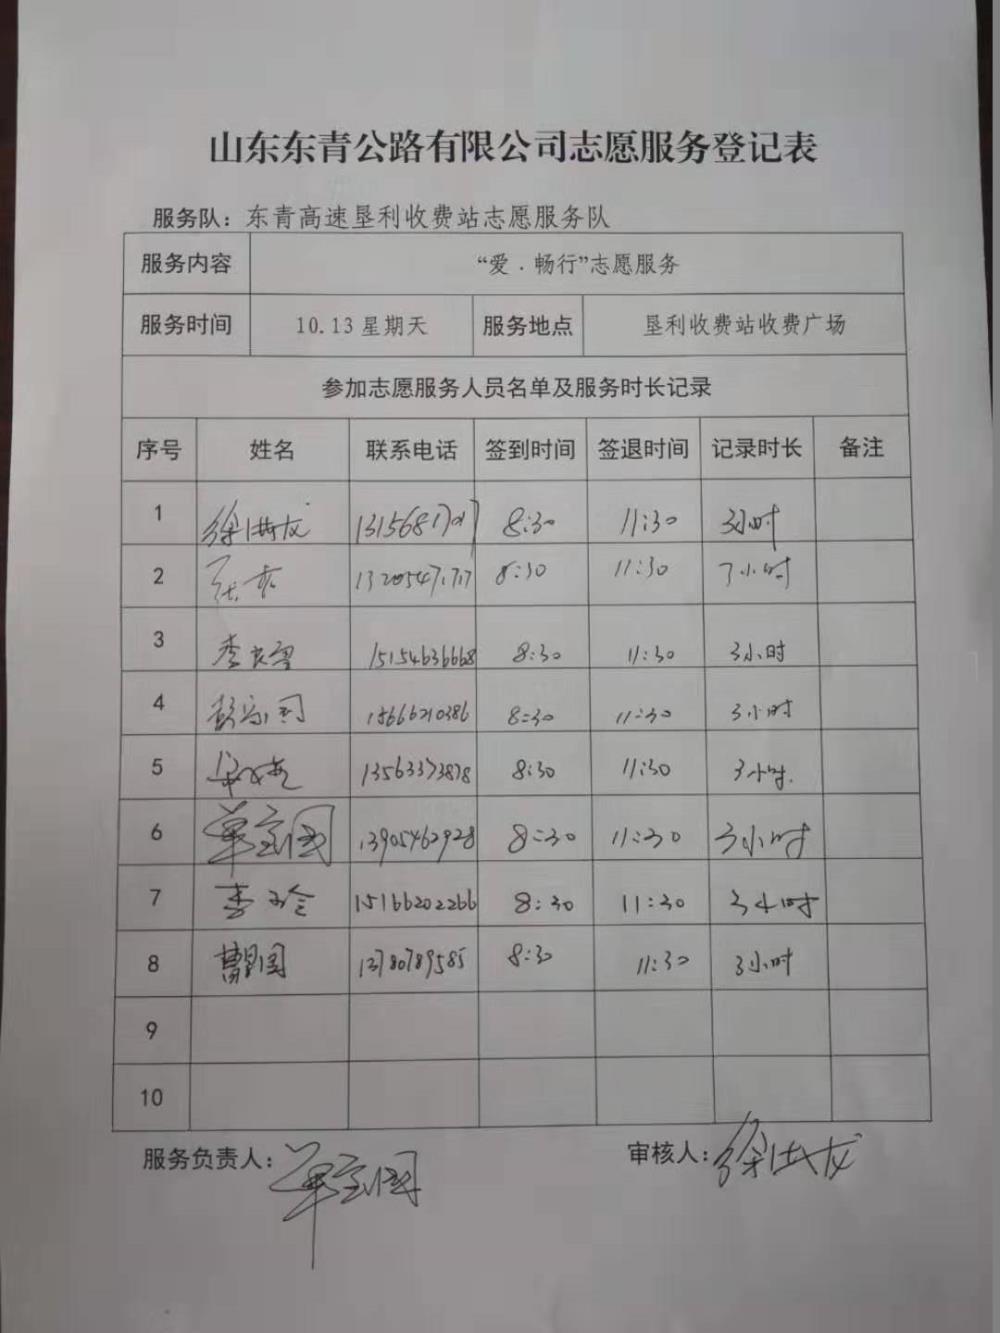 山东东青公路有限公司志愿服务登记表
服务队：东青高速垦利收费站志愿服务队
服务内容 “爱．畅行”志愿服务
服务时间 10.13 星期天 服务地点 垦利收费站收费广场
参加志愿服务人员名单及服务时长记录
序号 姓名 联系电话 签到时间 签退时间 记录时长 备注
1 徐洪龙 8:30 11:30 3小时
2 8:30 11:30 3小时
3 李良智 15154636668 8:30 11:30 3小时
4 15666210386 8:30 11:30 3小时
5 13563373878 8:30 11:30 3小时.
6 单宝国 13905462928 8:30 11:30 3小时
7 李玲 15166202266 8:30 11:30 3小时
8 13780789585 8:30 11:30 3小时
9
10
服务负责人：单宝国 审核人：徐洪龙